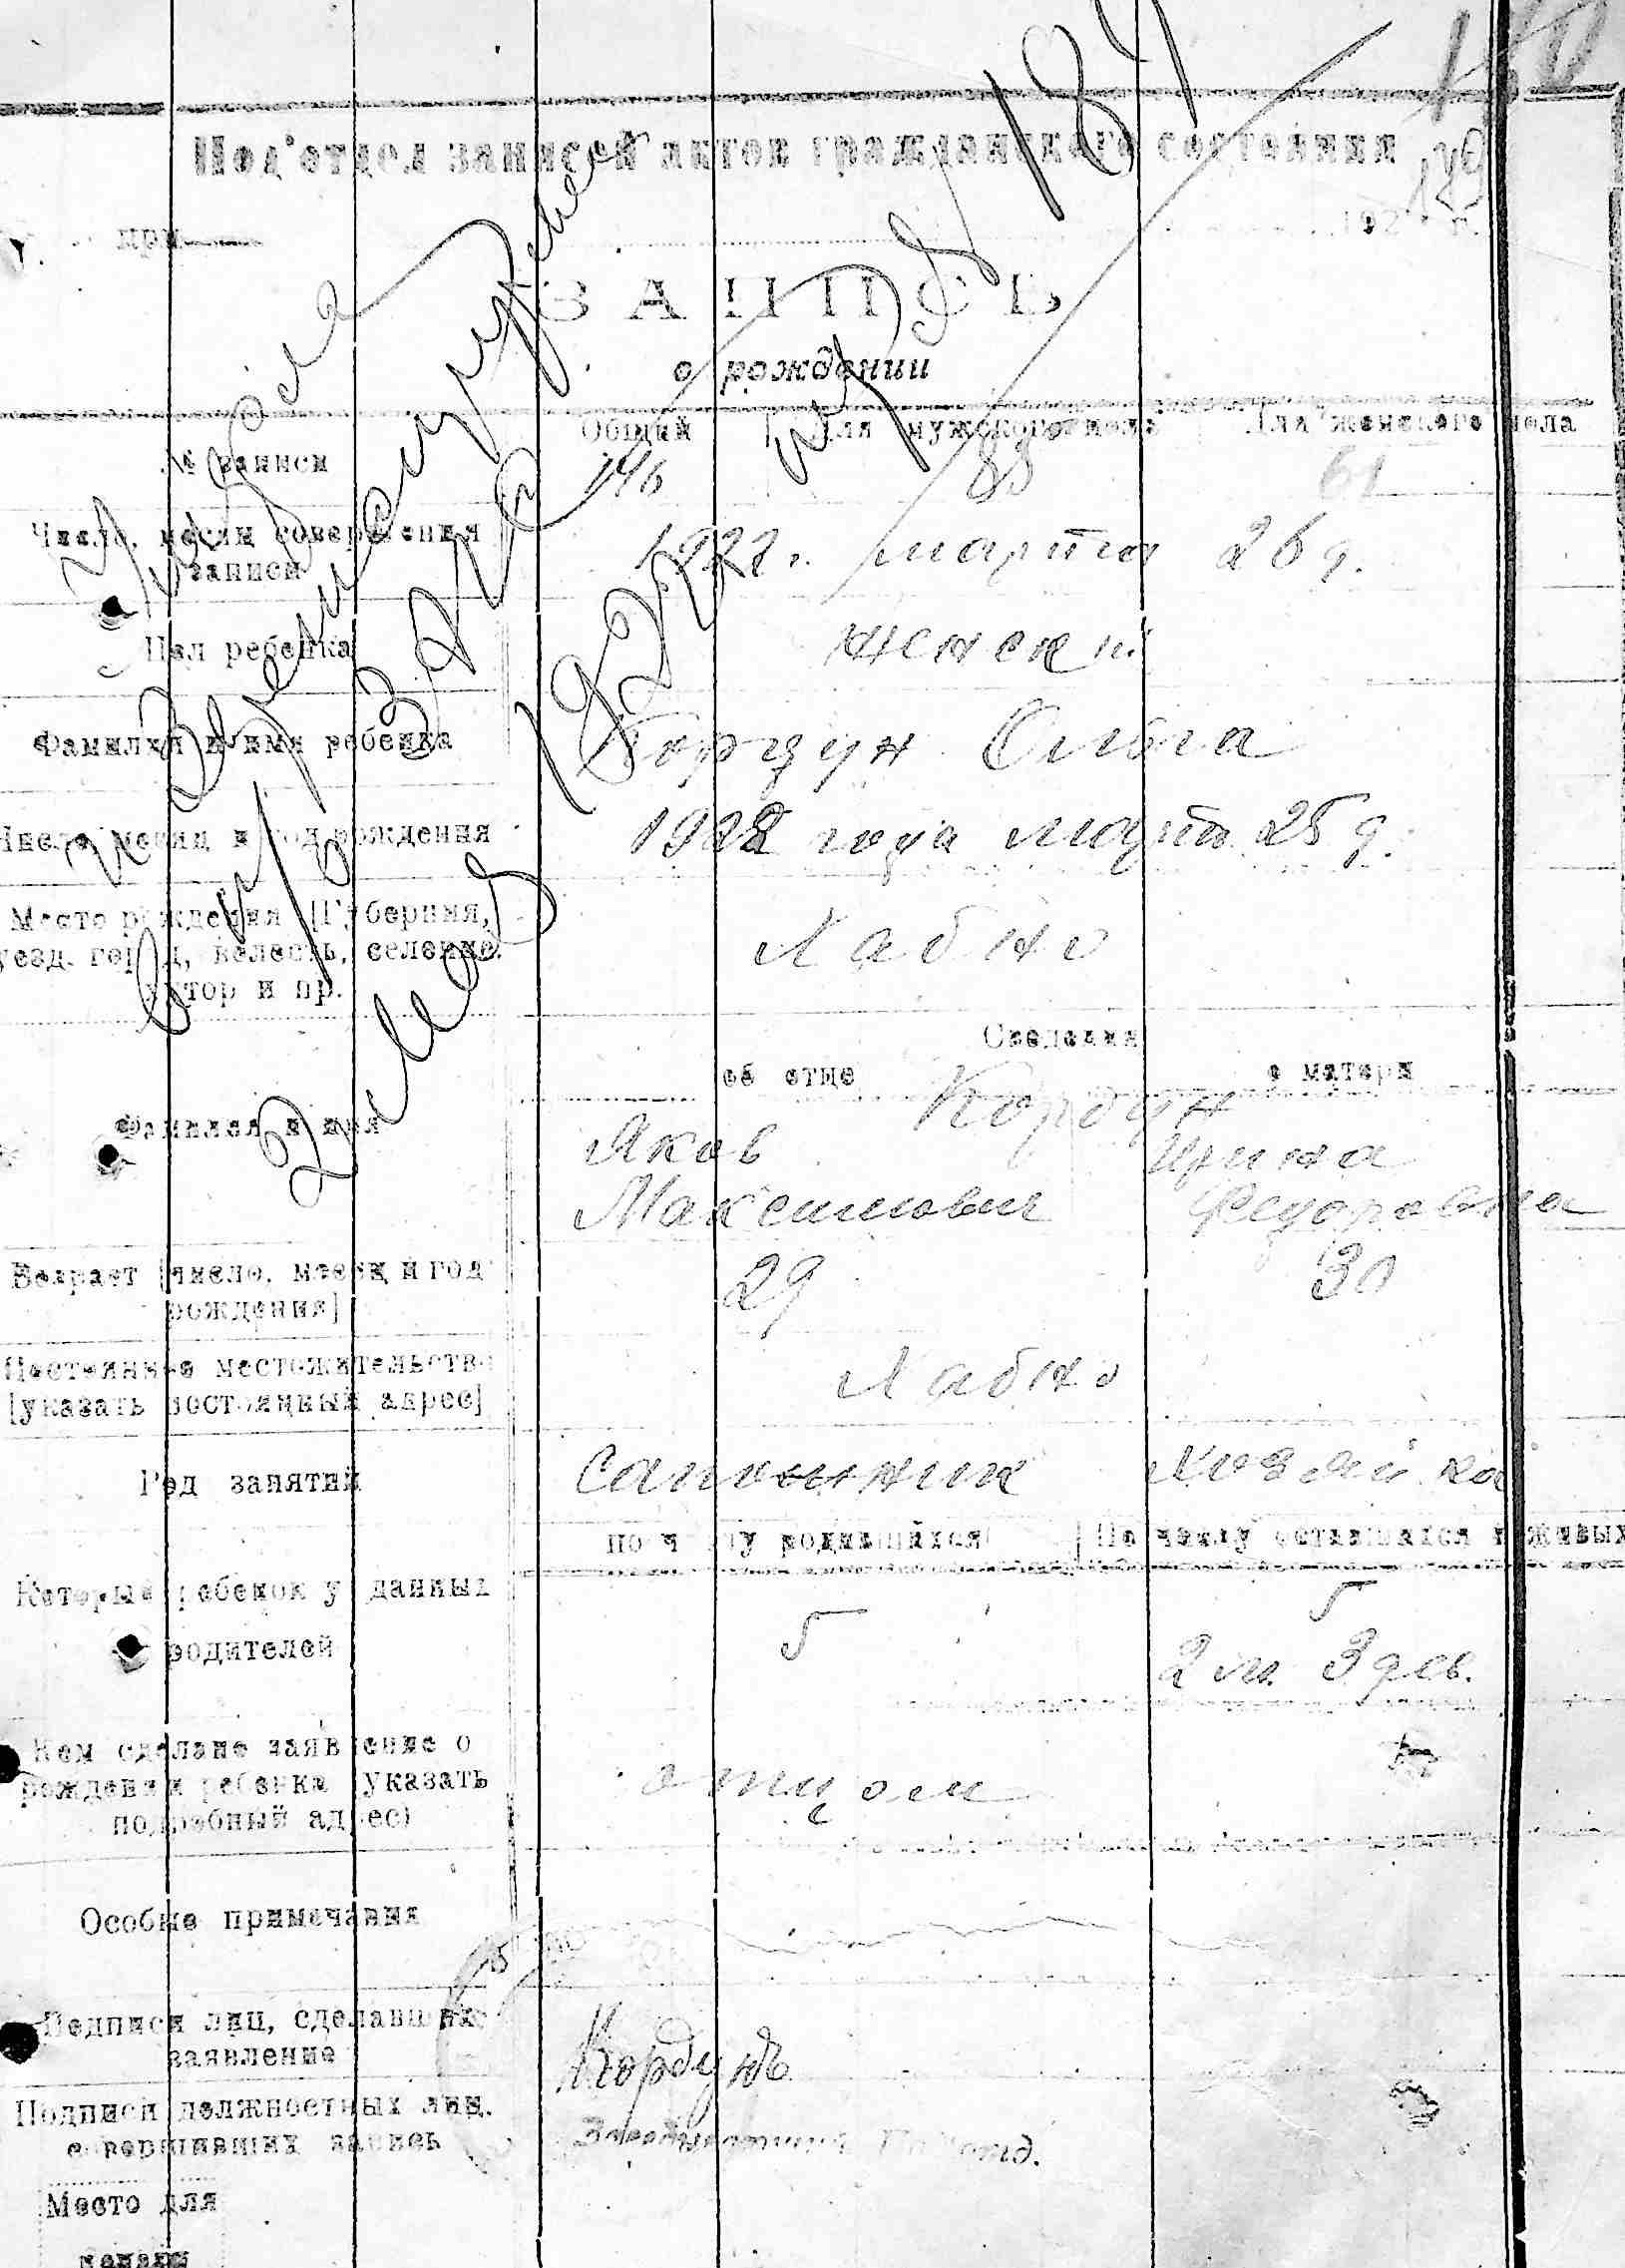 184
Под'отдел записей актов гражданского состояния
179
при
192 г.
ЗАПИСЬ
о рождении
Общий Для мужского пола Для женского пола
№ записи 146 85 61
Число, месяц совершения 1922 г. марта 26 д.
записи
Пол ребенка женский
Фамилия и имя ребенка Кордун Ольга
Число, месяц и год рождения 1922 года март 25 д.
Место рождения [Губерния,
уезд, город, волость, селение, Лабно
хутор и пр.
Сведения
об отце о матери
Кордун
Фамилия и имя Яков Ирина
Максимович Федоровна
Возраст [число, месяц и год 29 30
рождения]
Постоянное местожительство Лабно
[указать постоянный адрес]
Род занятий сапожник хозяйка
по числу родившихся По числу оставшихся в живых
Который ребенок у данных 5 5
родителей 2 м. 3 дев.
Кем сделано заявление о
рождении ребенка (указать отцом
подробный адрес)
Особые примечания
Подписи лиц, сделавших Кордунъ
заявление
Подписи должностных лиц,
совершивших запись
Место для
печати
1922